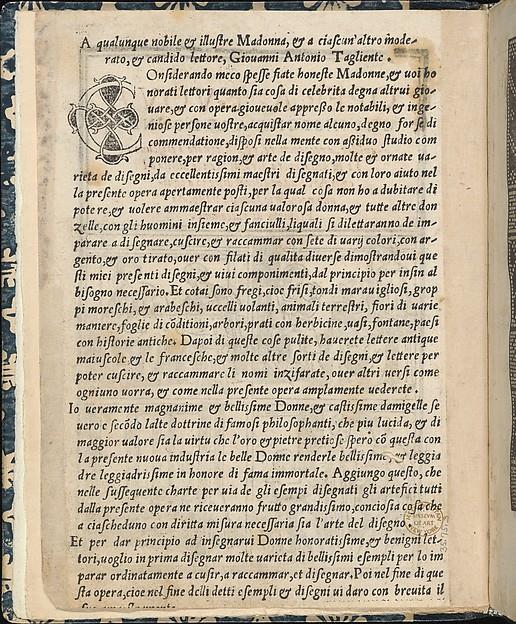 A qualunque nobile & illustre Madonna, & a ciascun'altro mode-
rato, & candido lettore, Giouanni Antonio Tagliente.
COnsiderando meco spesse fiate honeste Madonne, & uoi ho
norati lettori quanto sia cosa di celebrita degna altrui gio-
uare, & con opera gioueuole appresso le notabili, & inge-
niose persone uostre, acquistar nome alcuno, degno forse di
commendatione, disposi nella mente con assiduo studio com
ponere, per ragion, & arte de disegno, molte & ornate ua-
rieta de disegni, da eccellentissimi maestri disegnati, & con loro aiuto nel
la presente opera apertamente posti, per la qual cosa non ho a dubitare di
potere, & uolere ammaestrar ciascuna ualorosa donna, & tutte altre don
zelle, con gli huomini insieme, & fanciulli, liquali si dilettaranno de im-
parare a disegnare, cuscire, & raccammar con sete di uarij colori, con ar-
gento, & oro tirato, ouer con filati di qualita diuerse dimostrandoui que
sti mici presenti disegni, & uiui componimenti, dal principio per insin al
bisogno necessario. Et cotai sono fregi, cioe frisi, tondi marauigliosi, grop
pi moreschi, & arabeschi, uccelli uolanti, animali terrestri, fiori di uarie
maniere, foglie di cōditioni, arbori, prati con herbicine, uasi, fontane, paesi
con historie antiche. Dapoi di queste cose pulite, hauerete lettere antique
maiuscole & le francesche, & molte altre sorti de disegni, & lettere per
poter cuscire, & raccammare li nomi inzifarate, ouer altri uersi come
ogniuno uorra, & come nella presente opera amplamente uederete.
Io ueramente magnanime & bellissime Donne, & castissime damigelle se
uero e secōdo lalte dottrine di famosi philosophanti, che piu lucida, & di
maggior ualore sia la uirtu che l'oro & pietre pretiose spero cō questa con
la presente nuoua industria le belle Donne renderle bellissime, & leggia
dre leggiadrissime in honore di fama immortale. Aggiungo questo, che
nelle sussequente charte per uia de gli esempi disegnati gli artefici tutti
dalla presente opera ne riceueranno frutto grandissimo, conciosia cosa che
a ciascheduno con diritta misura necessaria sia l'arte del disegno.
Et per dar principio ad insegnarui Donne honoratissime, & benigni let-
tori, uoglio in prima disegnar molte uarieta di bellissimi esempli per lo im
parar ordinatamente a cusir, a raccammar, et disegnar. Poi nel fine di que
sta opera, cioe nel fine delli detti esempli & disegni ui daro con breuita il